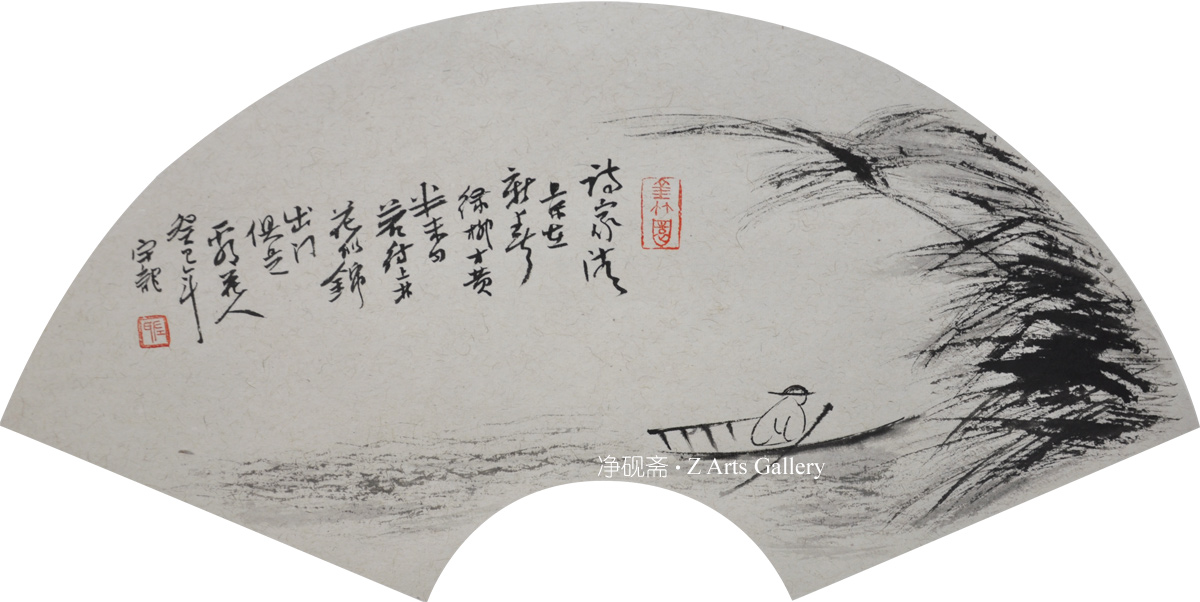 诗家清
景在
新春
绿柳才黄
半未匀
若待上林
花似錦
出门
俱是
看花人
癸巳年
净砚斋 · Z Arts Gallery